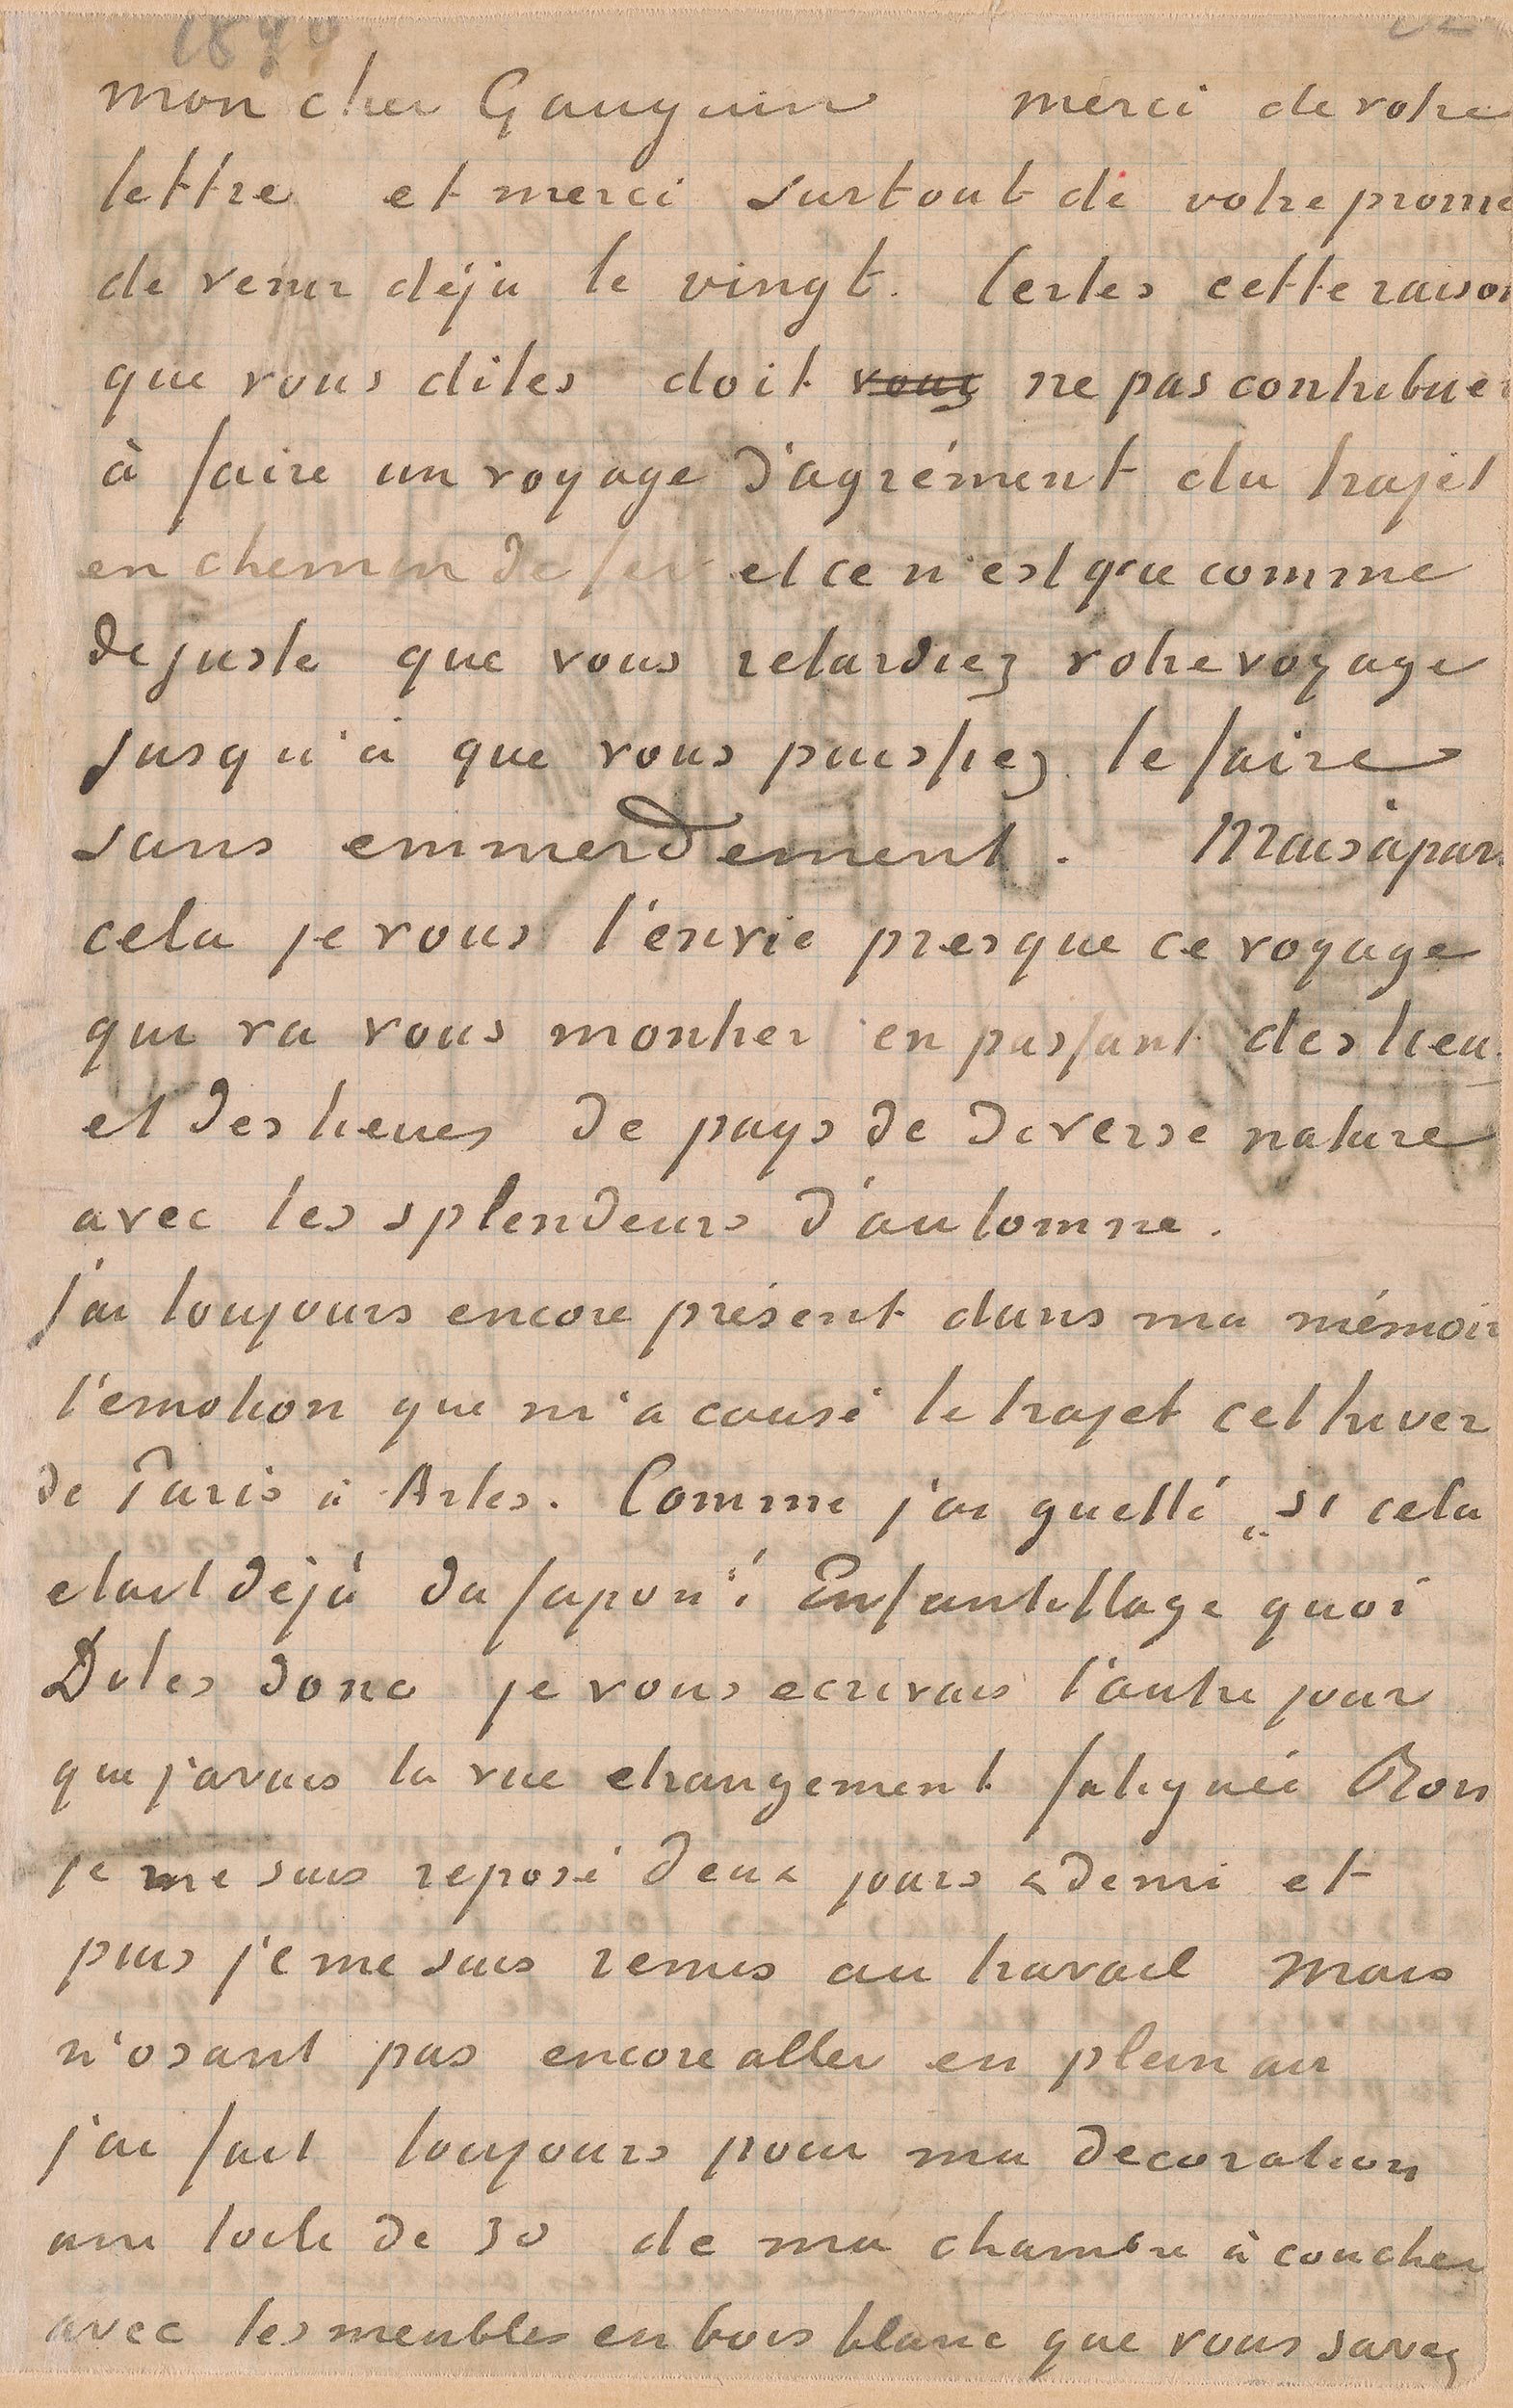 1890
mon cher Gauguin merci de votre
lettre et merci surtout de votre prome
de venir déjà le vingt. Certes cette raison
que vous dites doit vous ne pas contribuer
à faire un voyage d'agrément du trajet
en chemin de fer et ce n'est que comme
de juste que vous retardiez votre voyage
jusqu'à que vous puissiez le faire
sans emmerdement. Mais à part
cela je vous l'envie presque ce voyage
qui va vous montrer en passant des lieu
et des lieues de pays de diverse nature
avec les splendeurs d'automne.
J'ai toujours encore présent dans ma mémoir
l'emotion que m'a causé le trajet cet hiver
de Paris à Arles. Comme j'ai guetté „si cela
etait dejà du Japon“! Enfantillage quoi
Dites donc je vous ecrivais l'autre jour
que j'avais la vue etrangement fatiguée Bon
je me suis reposé deux jours & demi et
puis je me suis remis au travail mais
n'osant pas encore aller en plein air
j'ai fait toujours pour ma decoration
une toile de 30 de ma chambre à coucher
avec les meubles en bois blanc que vous savez